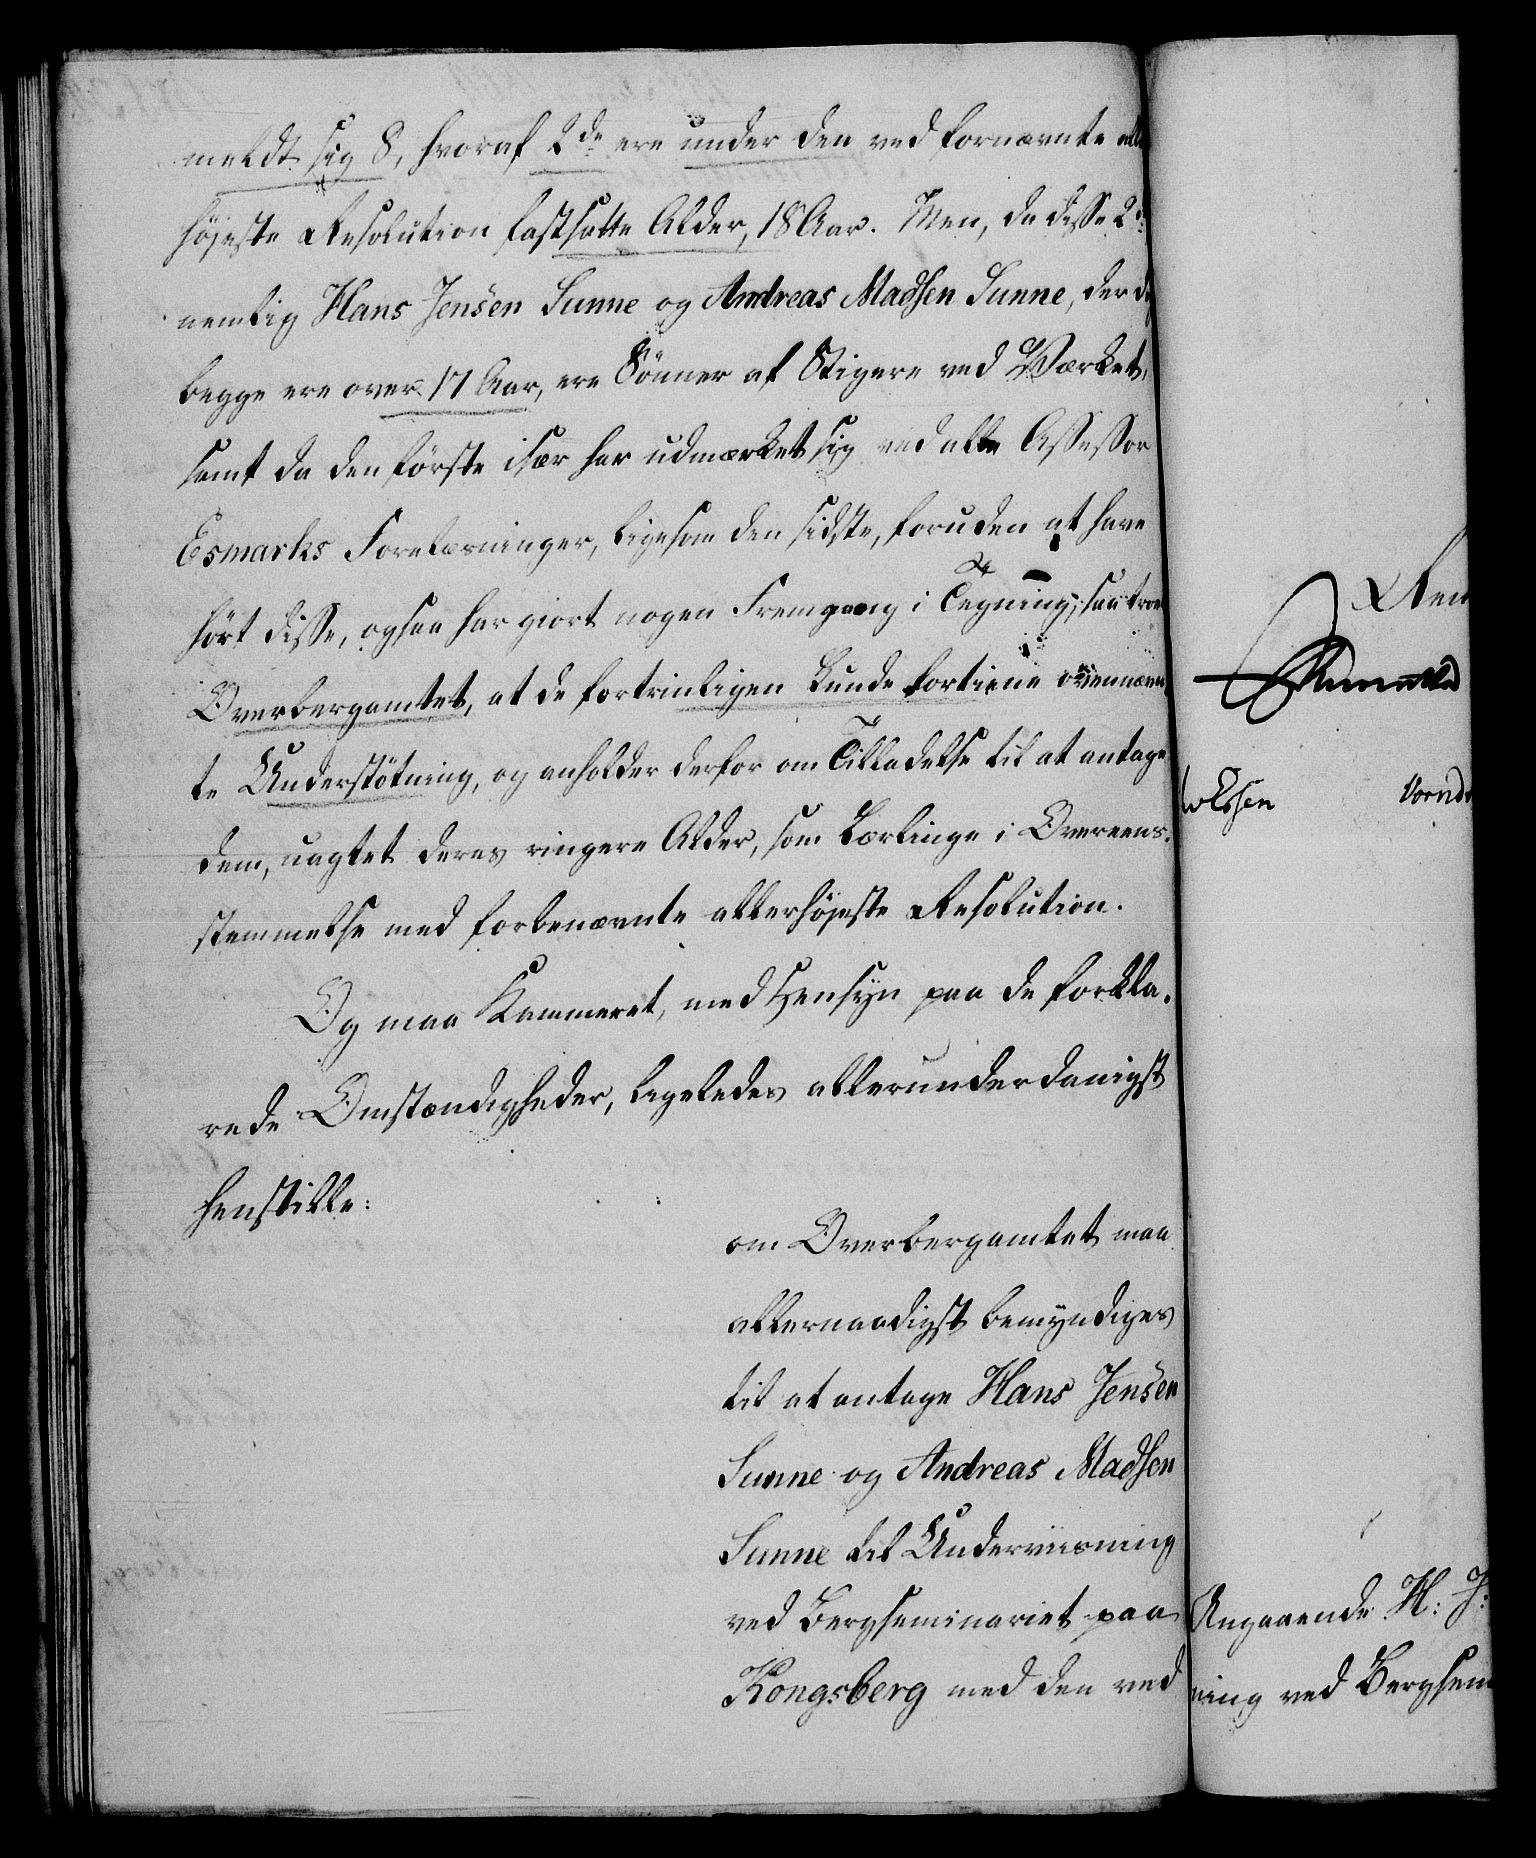 meldt sig 8, hvoraf 2de ere under den ved fornævnte aller
höjeste Resolution fastsatte Alder, 18 Aar. Men, da disse 2de
nemlig Hans Jensen Sunne og Andreas Madsen Sunne, der
begge ere over 17 Aar, ere Sönner af Stigere ved Værket,
samt da den förste især har udmærket sig ved alle Assessor
Esmarks Forelæsninger, ligesom den sidste, foruden at have
hört disse, ogsaa har giort nogen Fremgang i Tegning, saa troer
Overbergamtet, at de fortrinligen kunde fortiene ovennævn
te Understötning, og anholder derfor om Tilladelse til at antage
dem, uagtet deres ringere Alder, som Lærlinge i Overeens-
stemmelse med forbenævnte allerhöjeste Resolution.
Og maa Kammeret, med Hensyn paa de forkla-
rede Omstændigheder, ligeledes allerunderdanigst
henstille:
om Overbergamtet maa
allernaadigst bemyndiges
til at antage Hans Jensen
Sunne og Andreas Madsen
Sunne til Underviisning
ved Bergseminariet paa
Kongsberg med den ved
Ren
Vornd
Angaaende H: J:
ning ved Bergsem